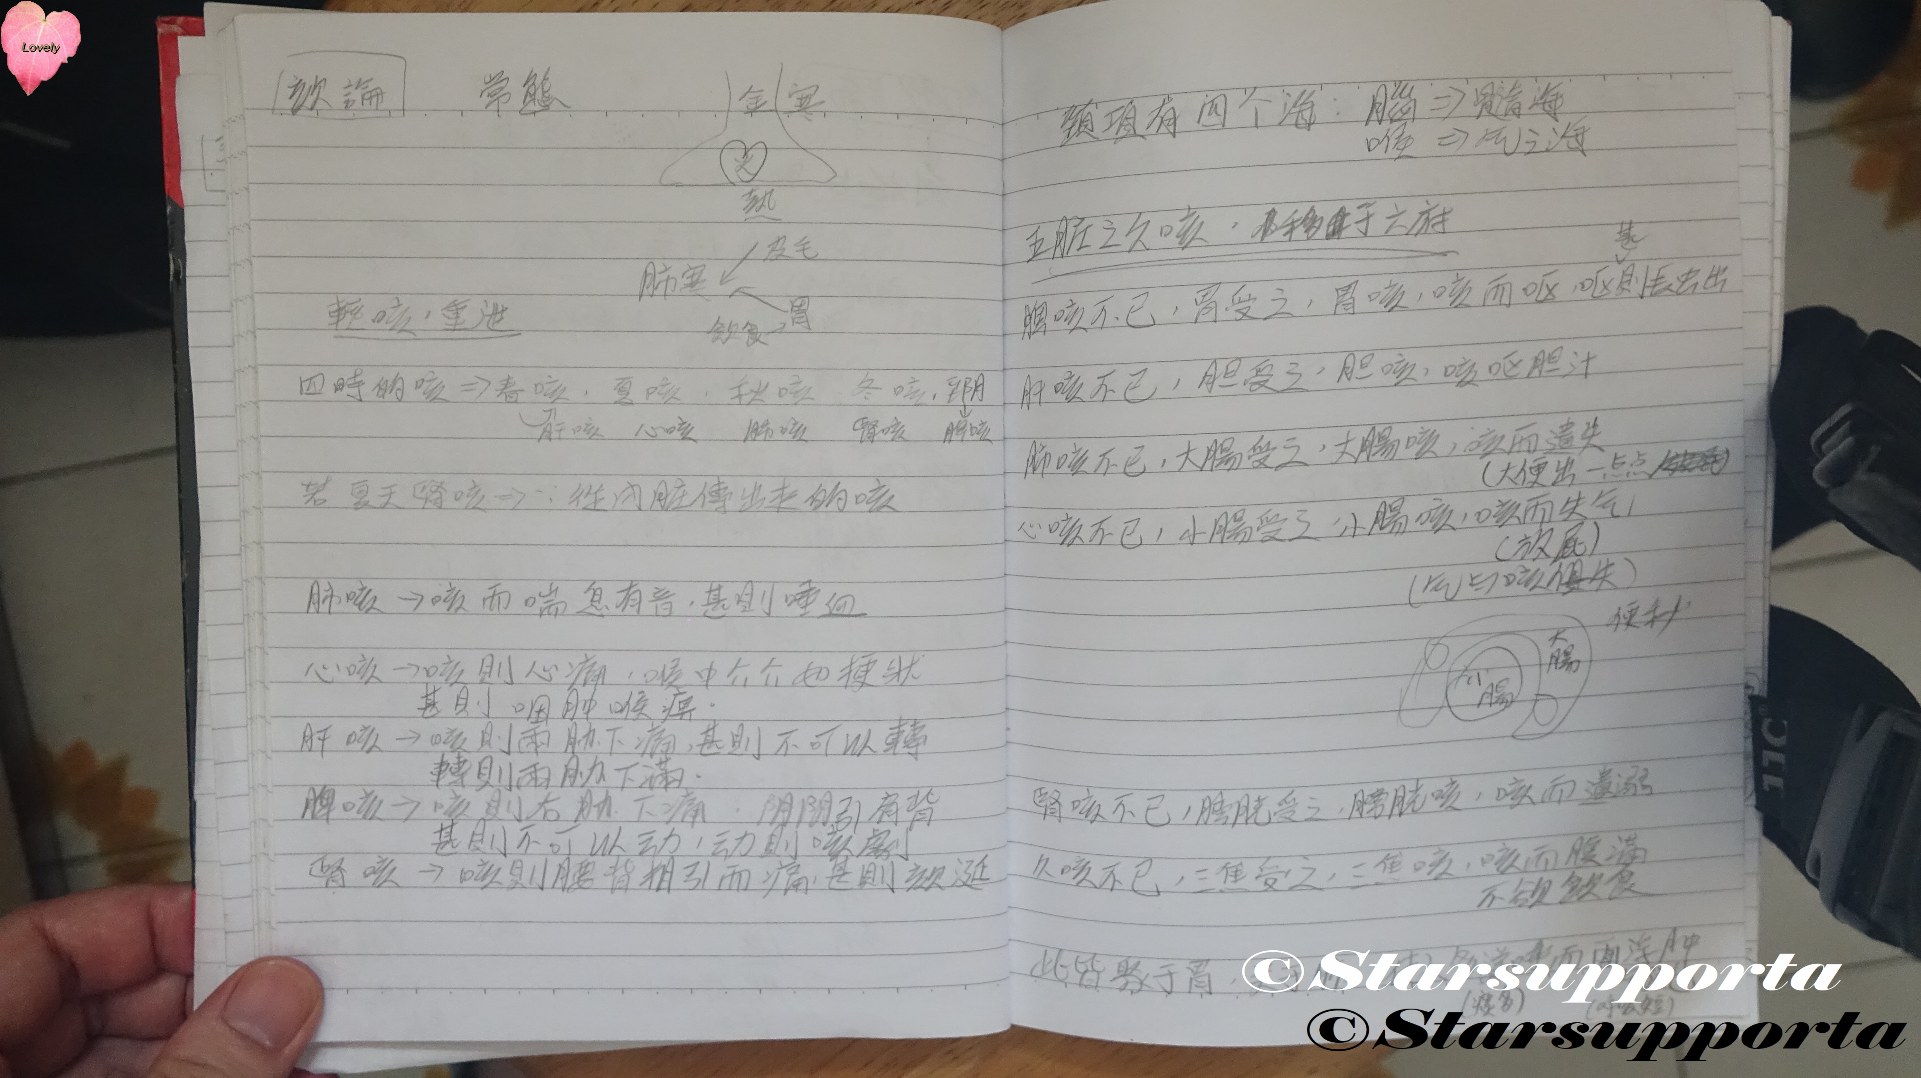 Lovely
欬論 常態 金寒
熱
皮毛
肺寒
胃
飲食→
輕咳,重泄
四時的咳⇒春咳,夏咳,秋咳 冬咳,
肝咳 心咳 肺咳 腎咳 脾咳
若夏天腎咳⇒∵從內脏傳出來的咳
肺咳→咳而喘息有音,甚則唾血
心咳→咳則心痛,喉中介介如梗狀
甚則咽肿喉痹.
肝咳→咳則兩胁下痛,甚則不可以轉
轉則兩胁下滿.
脾咳→咳則右胁下痛,阴阴引肩背
甚則不可以动,动則咳劇
腎咳→咳則腰背相引而痛,甚則欬涎
頸項有四个海:腦⇒髓海
喉⇒气之海
五脏之久咳,移于六府
甚
脾咳不已,胃受之,胃咳,咳而呕,呕則長虫出
肝咳不已,胆受之,胆咳,咳呕胆汁
肺咳不已,大腸受之,大腸咳,咳而遺失
(大便出一点点
心咳不已,小腸受之,小腸咳,咳而失气
(放屁)
(气与咳俱失)
便秘
大腸
小腸
腎咳不已,膀胱受之,膀胱咳,咳而遺溺
久咳不已,三焦受之,三焦咳,咳而腹滿
不欲飲食
此皆聚于胃,
(痰多)
©Starsupporta
©Starsupporta
11C